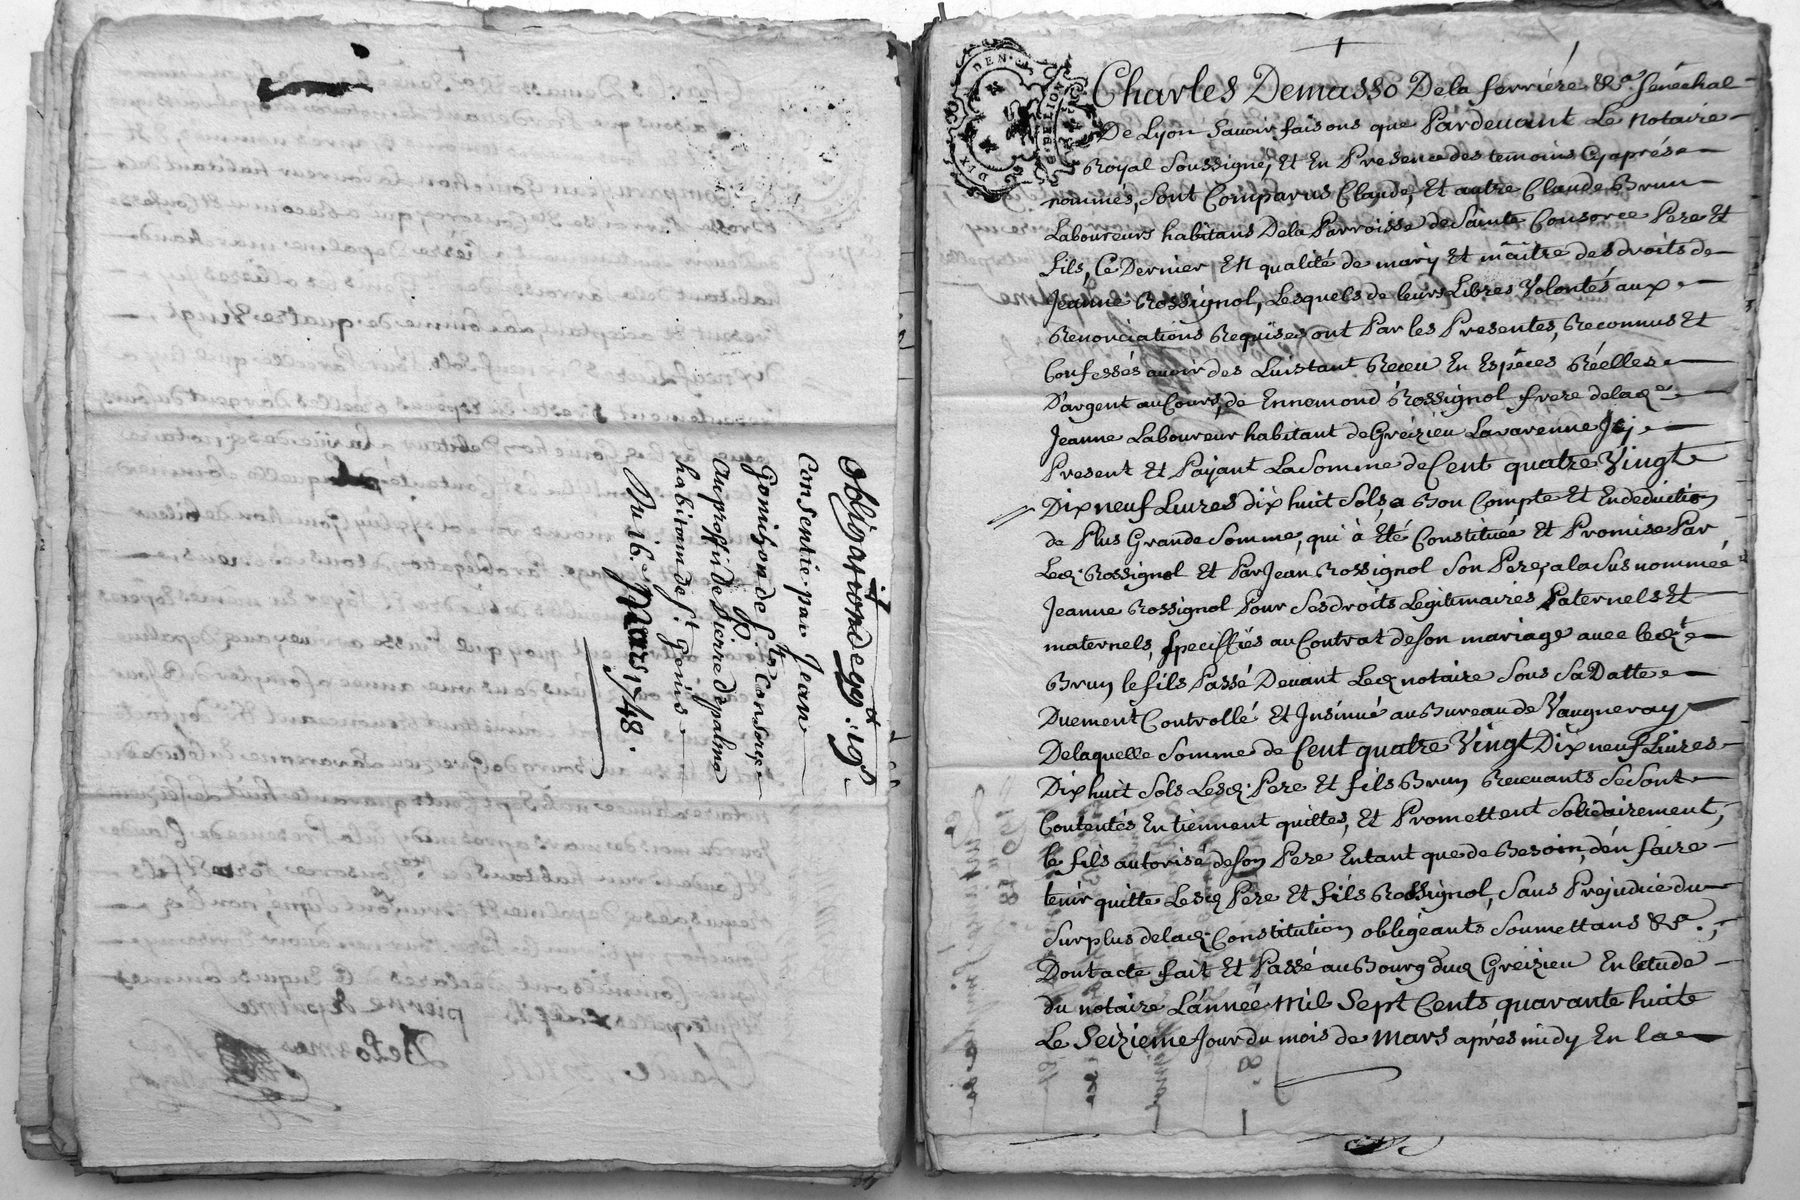 Obligation de 99ᵗᵗ: 19ˢ
Consentie par Jean
Gonichon de Sᵗᵉ Consorse
Au proffit de Pierre depalme
habitann de Sᵗ Genis
Du 16ᵉ Mars 1748.
DEN.
Charles Demasso De la ferriére &ᵃ. Senéchal
De Lyon Savoir faisons que Pardevant Le Notaire
Royal Soussigné, Et En Presence des temoins Cyaprés
nommés, Sont Comparus Claude, Et autre Claude Brun
Laboureurs habitans De la Parroisse de Sainte Consorce Pere Et
fils, Ce Dernier En qualité de mary Et maître des droits de
Jeanne Rossignol, Lesquels de leurs Libres Volontés aux
Renonciations Requises ont Par les Presentes, Reconnus Et
Confessés avoir des Luistant Receu En Espêces Réelles
D'argent au Cours, de Ennemond Rossignol frere de lad.
Jeanne Laboureur habitant de Greizieu Lavarenne Icj
Present Et Payant La Somme de Cent quatre Vingt
Dix neuf Livres dix huit Sols, a Bon Compte Et En deduction
de Plus Grande Somme, qui à Eté Constituée Et Promise Par
Led. Rossignol Et Par Jean Rossignol Son Pere, a la Sus nommée
Jeanne Rossignol Pour Ses droits Legitimaires Paternels Et
maternels, Speciffiés au Contrat de Son mariage avec led.
Brun le fils Passé Devant Led. notaire Sous Sa Datte
Duement Controllé Et Insinué au Bureau de Vaugneray
De laquelle Somme de Cent quatre Vingt Dix neuf Livres
Dix huit Sols Lesd. Pere Et fils Brun Recevants Se Sont
Contentés En tiennent quittes, Et Promettent Solidairement,
le fils autorisé de Son Pere Entant que de Besoin, dén faire
tenir quitte Lesd. Pere Et fils Rossignol, Sans Prejudice du
Surplus de lad. Constitution obligeants Soumettans &ᵃ.;
Dont acte fait Et Passé au Bourg dud. Greizieu En letude
du notaire L'année Mil Sept Cents quarante huite
Le Seizieme Jour du mois de Mars aprés midy En la